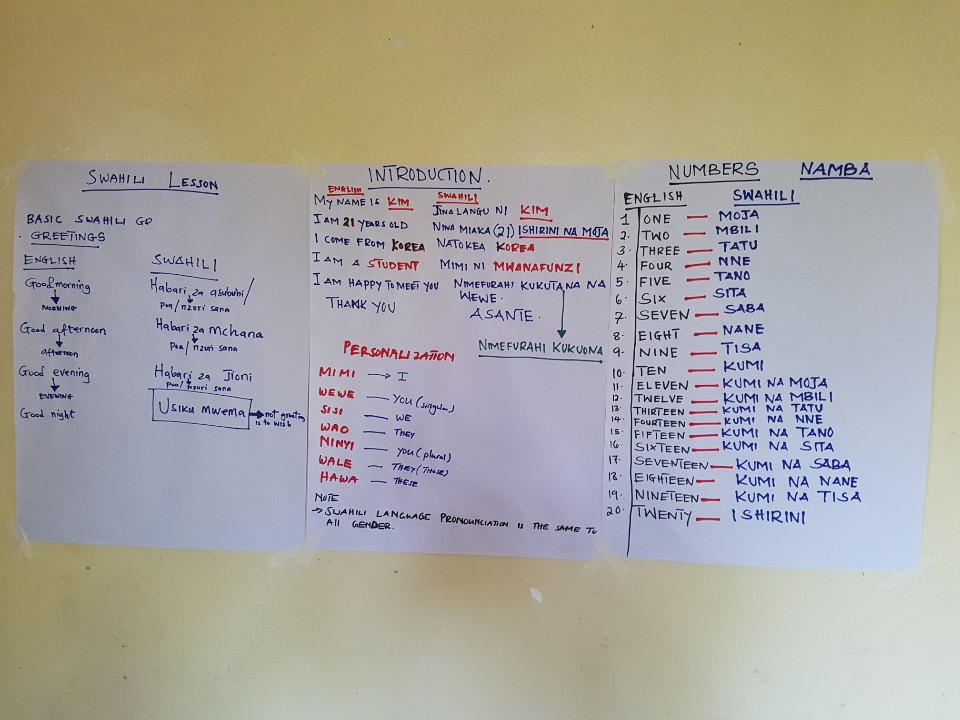 SWAHILI LESSON
BASIC SWAHILI GP
GREETINGS
ENGLISH SWAHILI
Goodmorning Habari za asubuhi/
MORNING poa/nzuri sana
Good afternoon Habari za mchana
afternoon poa/nzuri sana
Good evening Habari za Jioni
EVENING poa/nzuri sana
Good night USIKU MWEMA not greeting
is to wish
INTRODUCTION.
ENGLISH SWAHILI
MY NAME IS KIM JINA LANGU NI KIM
I AM 21 YEARS OLD NINA MIAKA (21) ISHIRINI NA MOJA
I COME FROM KOREA NATOKEA KOREA
I AM A STUDENT MIMI NI MWANAFUNZI
I AM HAPPY TO MEET YOU NIMEFURAHI KUKUTANA NA
WEWE.
THANK YOU ASANTE.
NIMEFURAHI KUKUONA
PERSONALIZATION
MIMI → I
WEWE — YOU (singular)
SISI — WE
WAO — THEY
NINYI — YOU (plural)
WALE — THEY (THOSE)
HAWA — THESE
NOTE
→ SWAHILI LANGUAGE PRONOUNCIATION IS THE SAME TO
All GENDER.
NUMBERS NAMBA
ENGLISH SWAHILI
1 ONE — MOJA
2. TWO — MBILI
3. THREE — TATU
4. FOUR — NNE
5. FIVE — TANO
6. SIX — SITA
7. SEVEN — SABA
8. EIGHT — NANE
9. NINE — TISA
10. TEN — KUMI
11. ELEVEN — KUMI NA MOJA
12. TWELVE — KUMI NA MBILI
13. THIRTEEN — KUMI NA TATU
14. FOURTEEN — KUMI NA NNE
15. FIFTEEN — KUMI NA TANO
16. SIXTEEN — KUMI NA SITA
17. SEVENTEEN — KUMI NA SABA
18. EIGHTEEN — KUMI NA NANE
19. NINETEEN — KUMI NA TISA
20. TWENTY — ISHIRINI